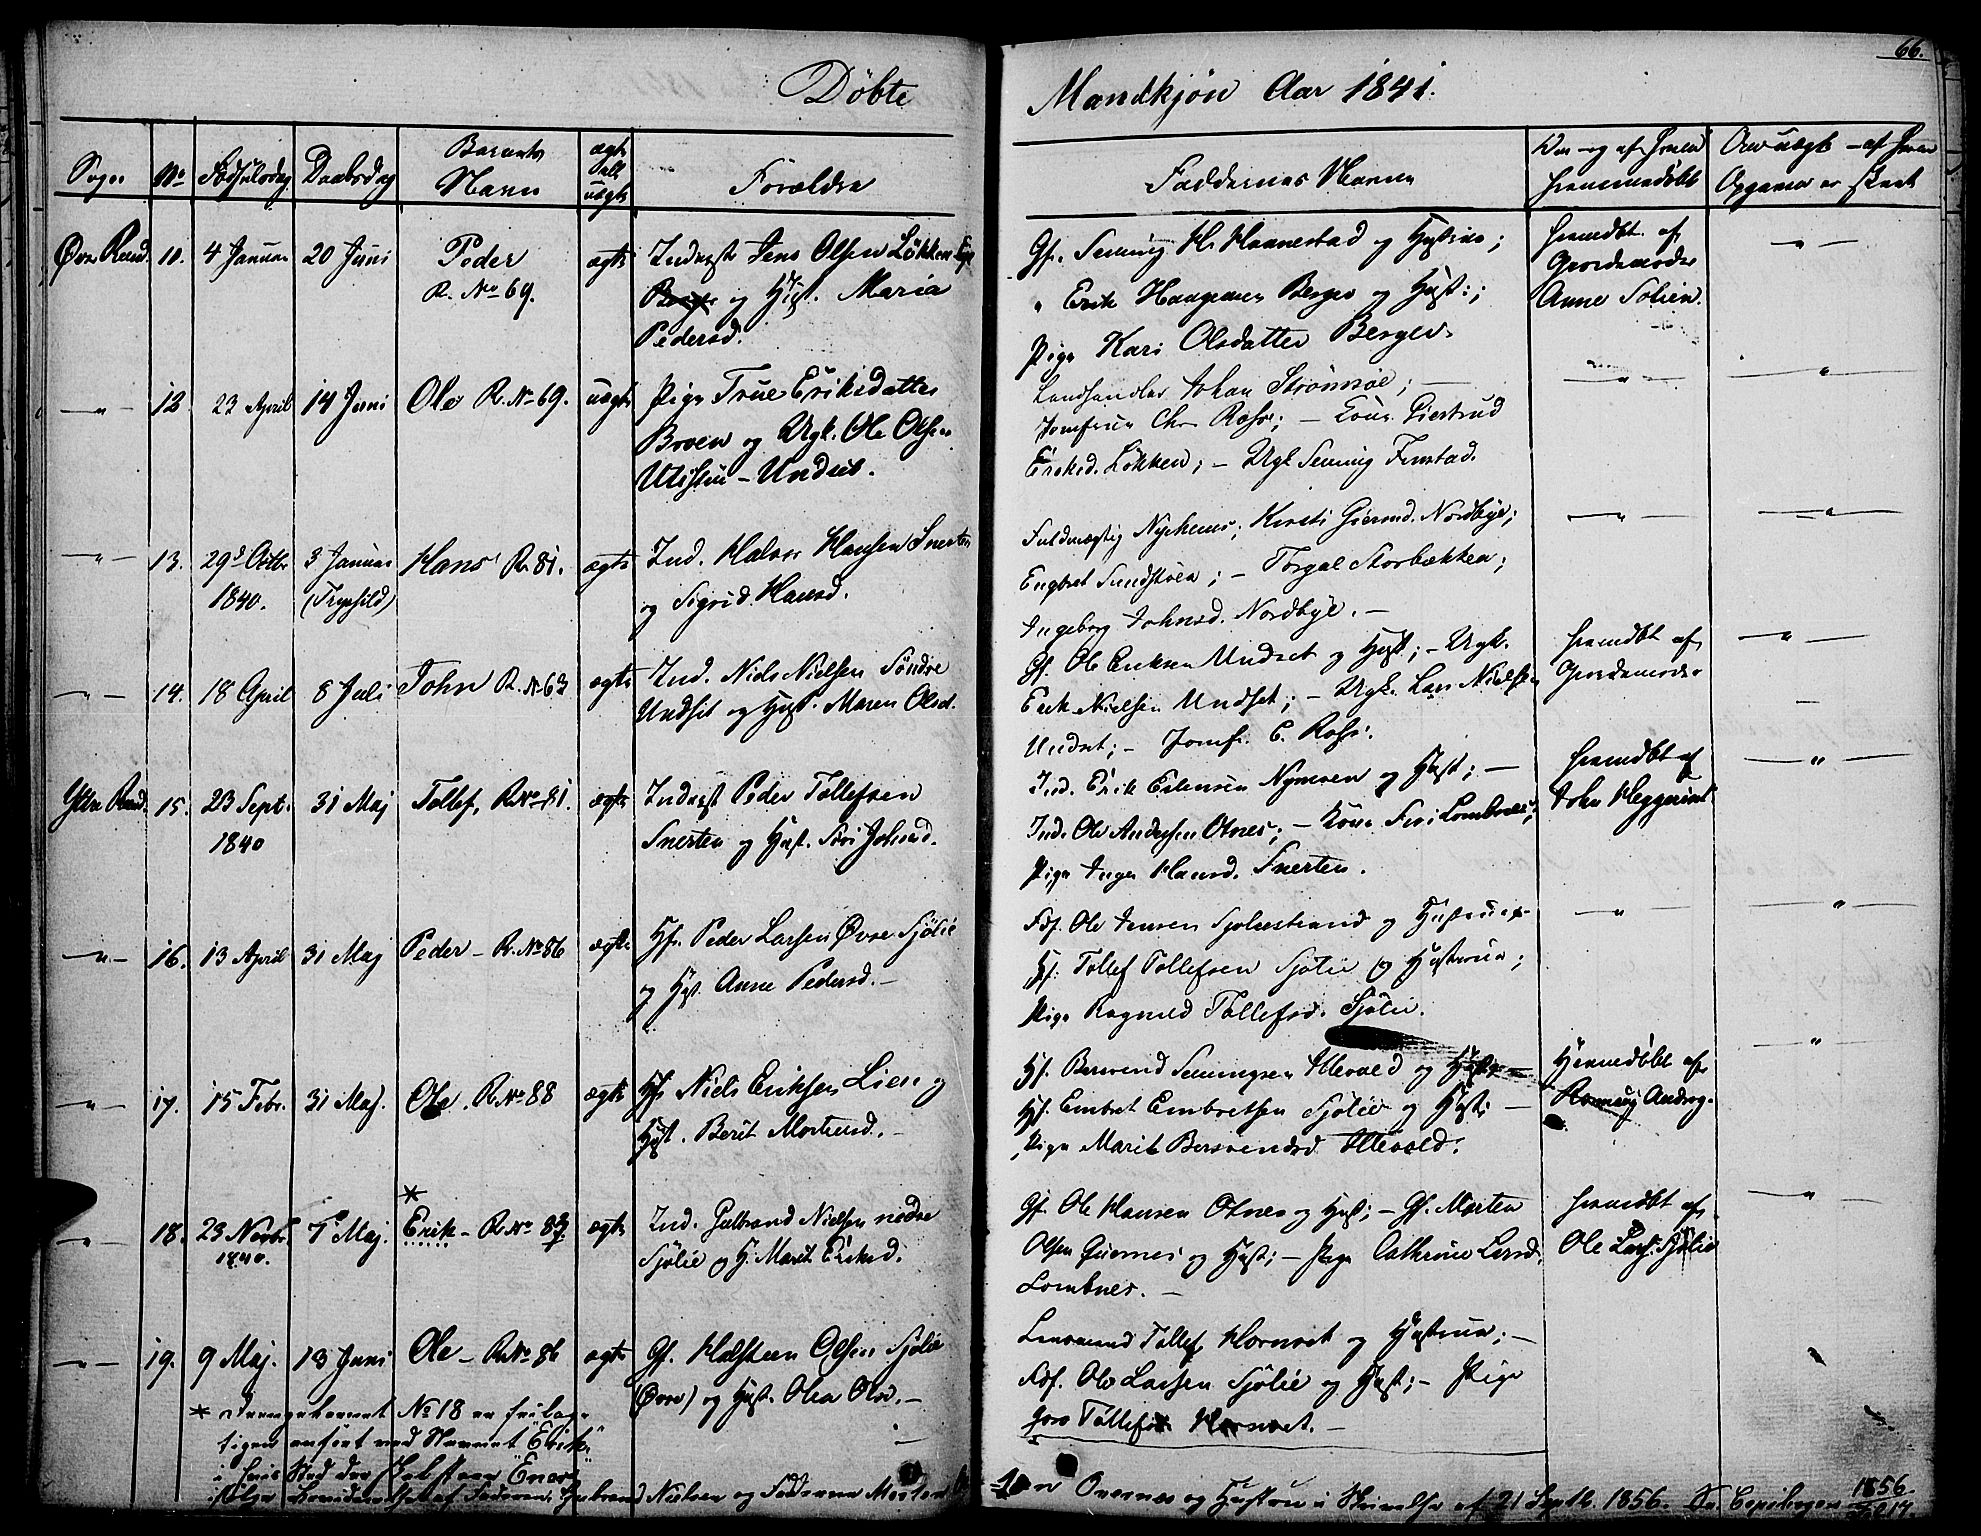 66.
Döbte
Mandkjön Aar 1841.
Sogn No Födselsdag Daabsdag Barnets Navn ægte ell uægte Forældre
Faddernes Navne
Naar og af hvem hjemmedöbt
Om uægte - af hvem Opgaven er skeet
Øvre Rend. 4 Januar 20 Juni Peder
R. No 69.
ægte Indrst Jens Olsen Lökken
og Hust. Maria
Pedersd.
Gf. Simming H. Haanestad og Hustrue;
" Erik Haagensen Berger og Hust:;
Pige Kari Olsdatter Berger.
hjemdbt. af
Gjordemoder
Anne Solien.
12 23 April 14 Juni Ole R. No 69. uægte Pige True Eriksdatter
Broen og Ugk. Ole Olsen
Utistuu - Undset.
Landhandler Johan Strömsöe; -
Jomfrue Chr. Rohr; - Kone Giertrud
Eriksd. Lökken; - Ugk Simming Finstad.
13. 29de Octbr 3 Januar Hans R. 81. ægte Ind. Halvor Hansen Snerten
1840. (Trysild)
og Sigrid Hansd.
Fuldmægtig Nyehuus; Kirsti Gierund. Nordbye;
Engbret Sundstöen; - Torgal Storbækken;
Ingeborg Johnsd. Nordbye. -
14. 18 April 8 Juli John R. No 63 ægte Ind. Niels Nielsen Söndre
Undset og Hust. Maren Olsd.
Gf. Ole Eriksen Undset og Hust; - Ugk.
Erik Nielsen Undset; - Ugk. Lars Nielsen
Undset; - Jomfr. C. Rohr.
hjemdbt af
Gjordemoder
Yttre Rend. 15. 23 Sept. 31 Maj Tollef, R. No 81. ægte Indrst Peder Tollefsen
1840
Snerten og Hust. Siri Johnsd.
Ind. Erik Estensen Nymoen og Hust; -
Ind. Ole Andersen Otnes; - Kone Siri Lombnes;
Pige Inger Hansd. Snerten.
hjemdbt af
John Heggeriset
16. 13 April 31 Maj Peder - R. No 86 ægte Hf. Peder Larsen Øvre Sjölie
og Hust Anne Pedersd. -
Fdf. Ole Jensen Sjölistrand og Hustrue
Hf. Tollef Tollefsen Sjölie og Hustrue;
Pige Ragnild Tollefsd. Sjölie.
17. 15 Febr. 31 Maj. Ole. R. No 88 ægte Hf. Niels Eriksen Lien og
Hust. Berit Mortensd. -
Hf. Bersvend Simmingsen Illevold og Hust; -
Hf. Embret Embretsen Sjölie og Hust; -
Pige Marit Bersvendsd Illevold.
Hjemdöbt af
18. 23 Novbr. 7de Maj. Erik - R. No 83 ægte Ind. Gulbrand Nielsen nedre
1840.
Sjölie og H. Marit Eriksd.
Gf. Ole Hansen Otnes og Hust; - Gf. Morten
Olsen Qvernes og Hust; - Pige Cathrine Larsd.
Lombnes. -
hjemdbt af
Ole Lars. Sjölie
19. 9 Maj. 13 Juni Ole - R. No 86 ægte Gf. Halsteen Olsen Sjölie
(Øvre) og Hust. Olea Olsd. -
Tollef Hornset og Hustrue; -
Fdf. Ole Larsen Sjölie og Hust; - Pige
Goro Tollefsd. Hornset. -
* Drengebarnet No 18 er feilag-
tigen anfört ved Navnet "Erik"
i hvis Sted der skal staa "Enar"
ifölge Bevidnelse af Faderen, Gulbrand Nielsen og Fadderne Morten
og Hustru i Skrivelse af 21 Septb. 1856. Cfr. Copibogen 1856.